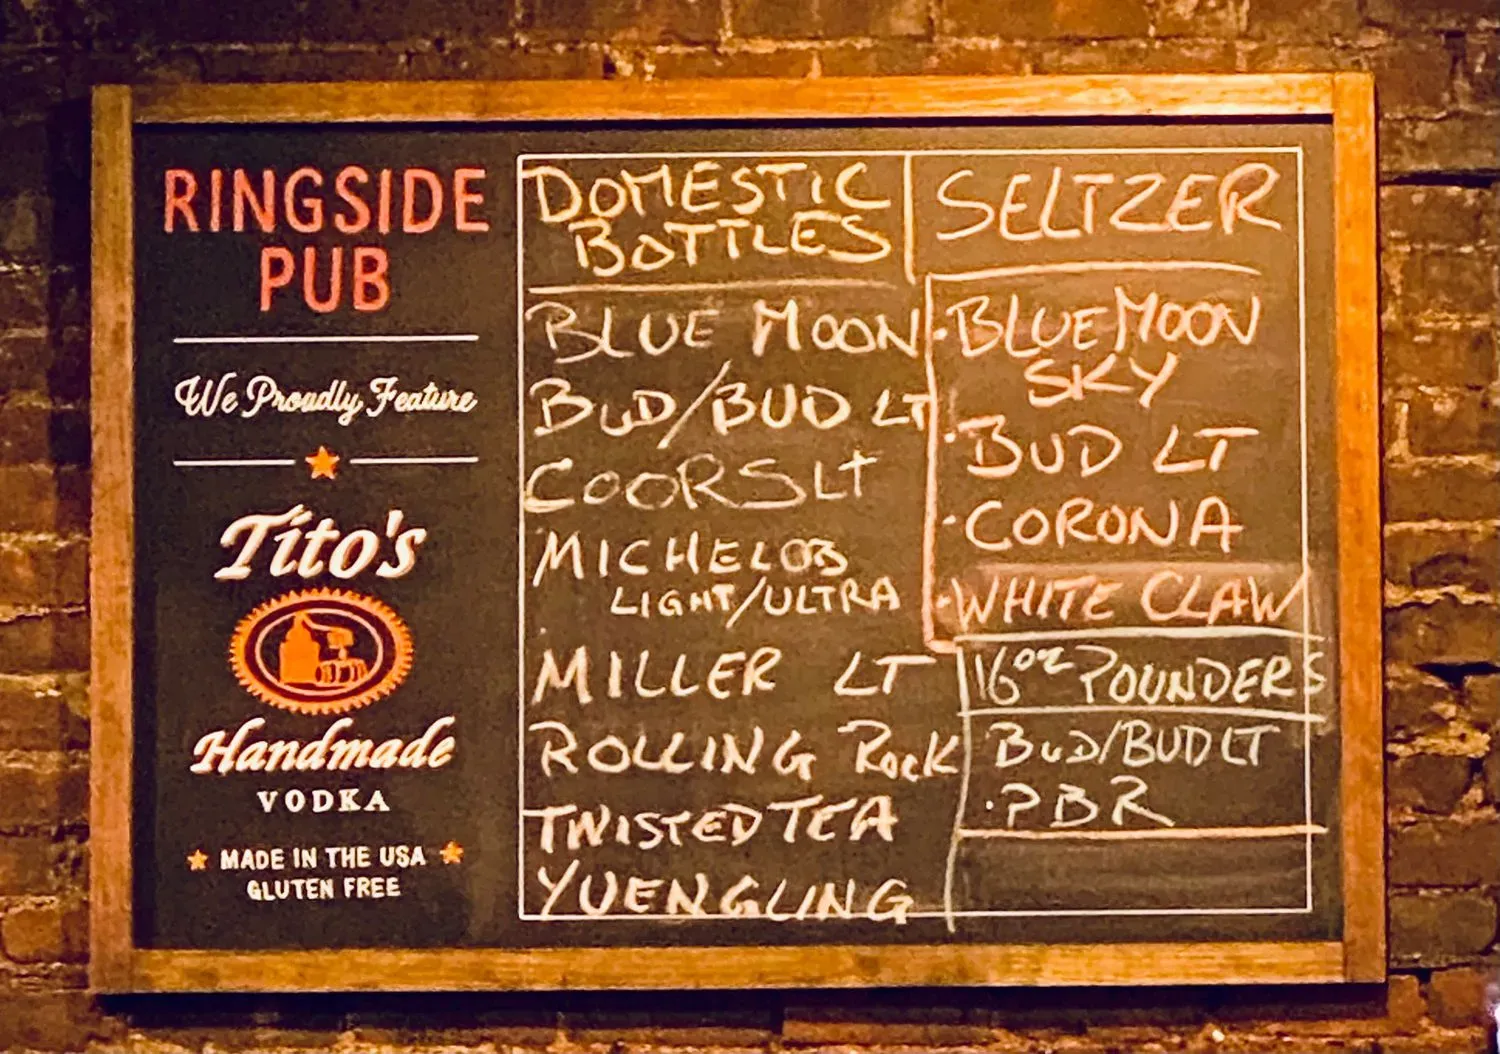 RINGSIDE
PUB
We Proudly Feature
Tito's
Handmade
VODKA
MADE IN THE USA
GLUTEN FREE
DOMESTIC
BOTTLES
BLUE MOON
BUD/BUD LT
COORS LT
MICHELOB
LIGHT/ULTRA
MILLER LT
ROLLING ROCK
TWISTED TEA
YUENGLING
SELTZER
·BLUE MOON
SKY
·BUD LT
·CORONA
·WHITE CLAW
16oz POUNDERS
BUD/BUD LT
·PBR